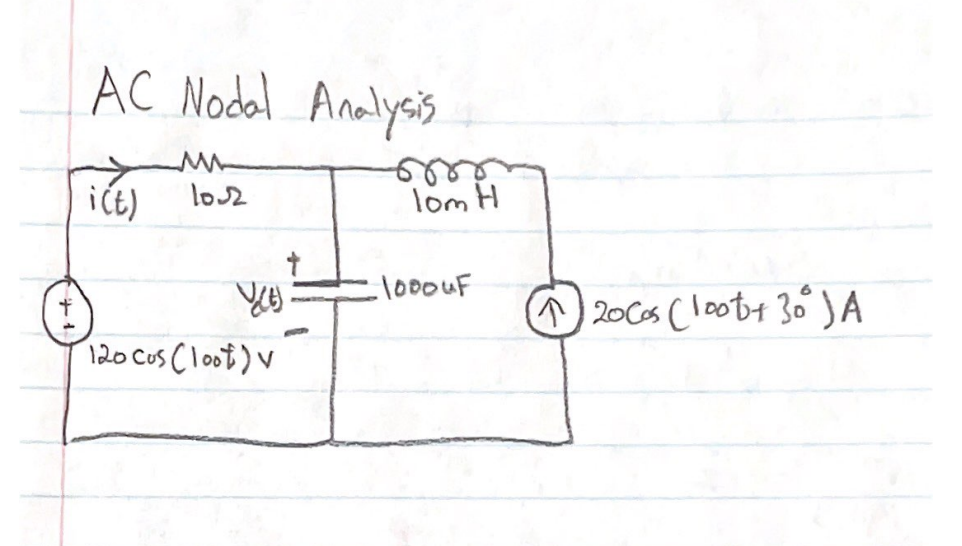 AC Nodal Analysis
i(t)
10Ω
10mH
+
Vc(t)
-
1000uF
+
-
120cos(100t)v
↑
20cos(100t+30°)A